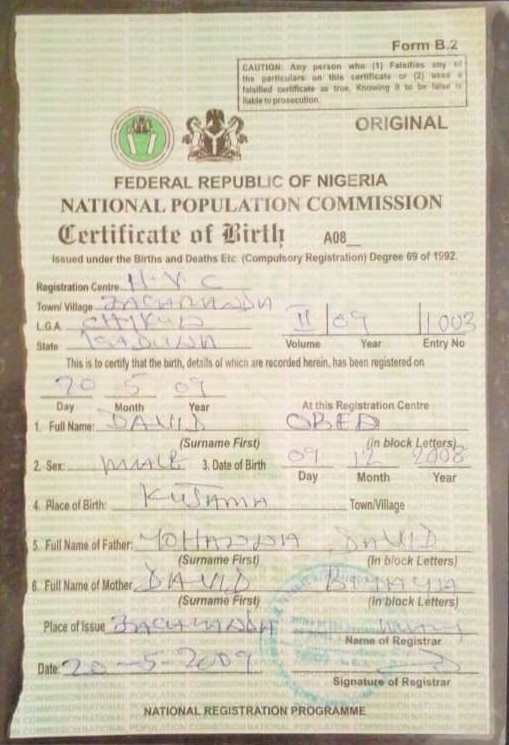 Form B.2
CAUTION: Any person who (1) Falsifies any of
the particulars on this certificate or (2) uses a
falsified certificate as true, Knowing it to be false is
liable to prosecution.
ORIGINAL
FEDERAL REPUBLIC OF NIGERIA
NATIONAL POPULATION COMMISSION
Certificate of Birth A08
Issued under the Births and Deaths Etc (Compulsory Registration) Degree 69 of 1992.
Registration Centre H.V.C
Town/ Village
L.G.A. CHIKUN II 09 1003
State KADUNA Volume Year Entry No
This is to certify that the birth, details of which are recorded herein, has been registered on
20 5 09
Day Month Year At this Registration Centre
1. Full Name: DAVID OBED
(Surname First) (in block Letters)
2. Sex: MALE 3. Date of Birth 09 12 2008
Day Month Year
4. Place of Birth: KUJAMA Town/Village
5. Full Name of Father: YOHANNA DAVID
(Surname First) (in block Letters)
6. Full Name of Mother DAVID
(Surname First) (in block Letters)
Place of Issue
Name of Registrar
Date: 20-5-2009
Signature of Registrar
NATIONAL REGISTRATION PROGRAMME